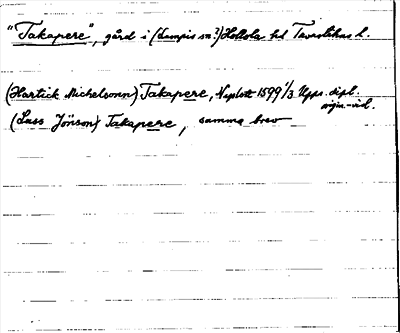 "Takapere", gård i (Lempis sn?) Hollola hd Tavastehus l.
(Hartick Michelsonn) Takapere, Nyslott 1599 1/3 Upps. dipl.
orgin.-vid.
(Lass Jönson) Takapere, samma brev